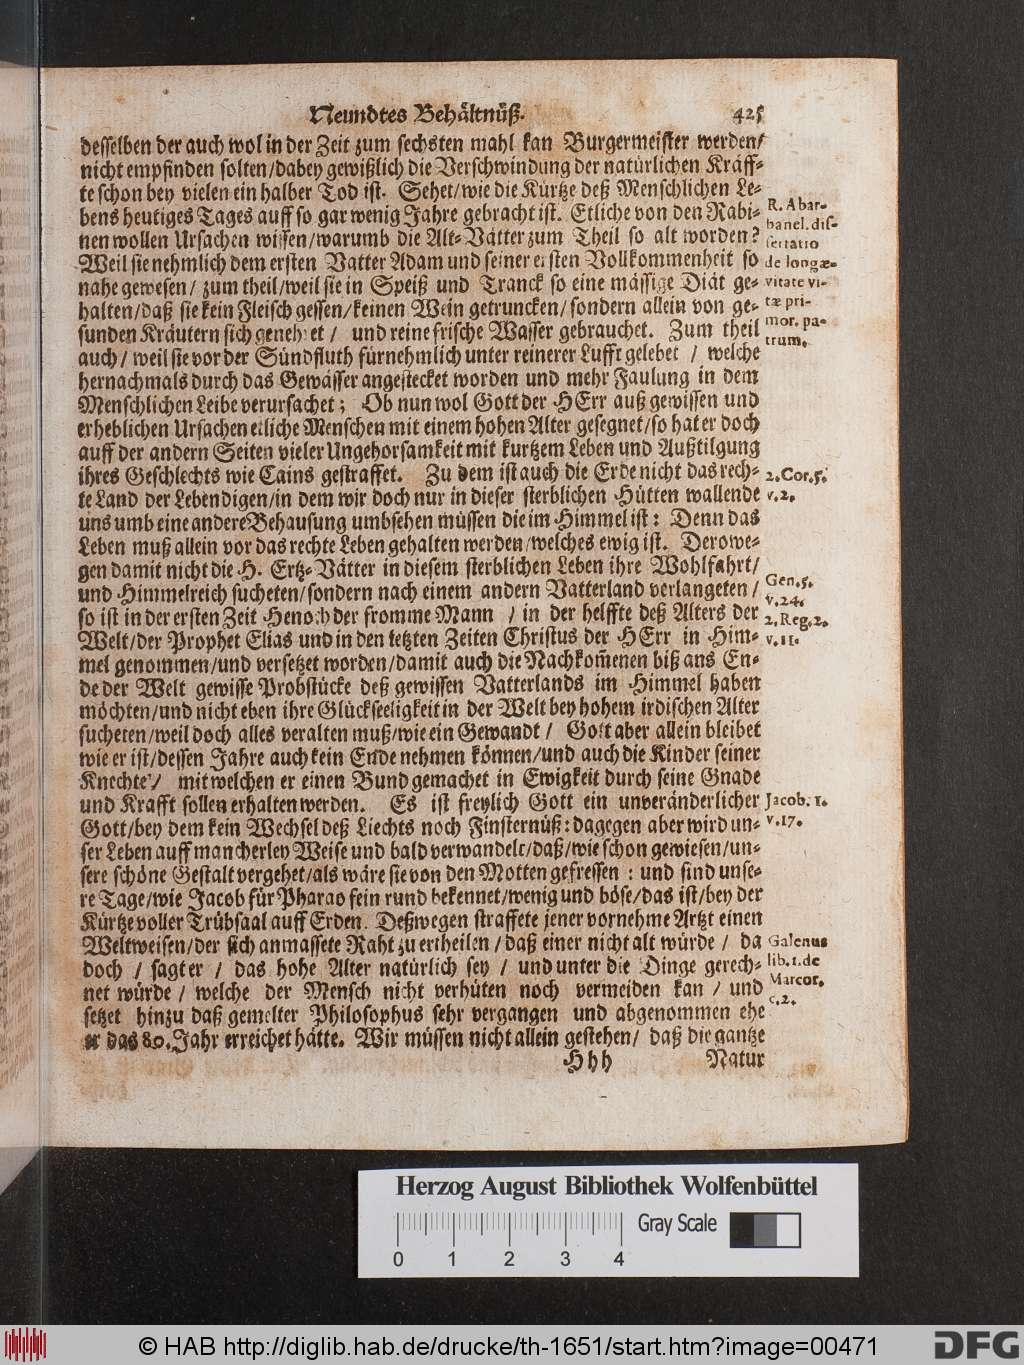 Neundtes Behältnüß. 425
desselben der auch wol in der Zeit zum sechsten mahl kan Burgermeister werden/
nicht empfinden solten/dabey gewißlich die Verschwindung der natürlichen Kräff-
te schon bey vielen ein halber Tod ist. Sehet/wie die Kürtze deß Menschlichen Le-
bens heutiges Tages auff so gar wenig Jahre gebracht ist. Etliche von den Rabi-
nen wollen Ursachen wissen/warumb die Alt-Vätter zum Theil so alt worden?
Weil sie nehmlich dem ersten Vatter Adam und seiner ersten Vollkommenheit so
nahe gewesen/ zum theil/weil sie in Speiß und Tranck so eine mässige Diät ge-
halten/daß sie kein Fleisch gessen/keinen Wein getruncken/sondern allein von ge-
sunden Kräutern sich genehret/ und reine frische Wasser gebrauchet. Zum theil
auch/ weil sie vor der Sündfluth fürnehmlich unter reinerer Lufft gelebet / welche
hernachmals durch das Gewässer angestecket worden und mehr Faulung in dem
Menschlichen Leibe verursachet; Ob nun wol Gott der HErr auß gewissen und
erheblichen Ursachen etliche Menschen mit einem hohen Alter gesegnet/so hat er doch
auff der andern Seiten vieler Ungehorsamkeit mit kurtzem Leben und Außtilgung
ihres Geschlechts wie Cains gestraffet. Zu dem ist auch die Erde nicht das rech-
te Land der Lebendigen/in dem wir doch nur in dieser sterblichen Hütten wallende
uns umb eine andere Behausung umbsehen müssen die im Himmel ist: Denn das
Leben muß allein vor das rechte Leben gehalten werden/welches ewig ist. Derowe-
gen damit nicht die H. Ertz-Vätter in diesem sterblichen Leben ihre Wohlfahrt/
und Himmelreich sucheten/sondern nach einem andern Vatterland verlangeten /
so ist in der ersten Zeit Henoch der fromme Mann / in der helffte deß Alters der
Welt/der Prophet Elias und in den letzten Zeiten Christus der HErr in Him-
mel genommen/und versetzet worden/damit auch die Nachkom̃enen biß ans En-
de der Welt gewisse Probstücke deß gewissen Vatterlands im Himmel haben
möchten/und nicht eben ihre Glückseeligkeit in der Welt bey hohem irdischen Alter
sucheten/weil doch alles veralten muß/wie ein Gewandt / Gott aber allein bleibet
wie er ist/dessen Jahre auch kein Ende nehmen können/und auch die Kinder seiner
Knechte/ mit welchen er einen Bund gemachet in Ewigkeit durch seine Gnade
und Krafft sollen erhalten werden. Es ist freylich Gott ein unveränderlicher
Gott/bey dem kein Wechsel deß Liechts noch Finsternüß: dagegen aber wird un-
ser Leben auff mancherley Weise und bald verwandelt/daß/wie schon gewiesen/un-
sere schöne Gestalt vergehet/als wäre sie von den Motten gefressen : und sind unse-
re Tage/wie Jacob für Pharao fein rund bekennet/wenig und böse/das ist/bey der
Kürtze voller Trübsaal auff Erden. Deßwegen straffete jener vornehme Artzt einen
Weltweisen/der sich anmassete Raht zu ertheilen/daß einer nicht alt würde / da
doch / sagt er / das hohe Alter natürlich sey / und unter die Dinge gerech-
net würde / welche der Mensch nicht verhüten noch vermeiden kan / und
setzet hinzu daß gemelter Philosophus sehr vergangen und abgenommen ehe
er das 80. Jahr erreichet hätte. Wir müssen nicht allein gestehen/ daß die gantze
Hhh Natur
R. Abar-
banel. dis-
sertatio
de longæ-
vitate vi-
tæ pri-
mor. pa-
trum.
2. Cor. 5.
v. 2.
Gen. 5.
v. 24.
2. Reg. 2.
v. 11.
Jacob. 1.
v. 17.
Galenus
lib. 1. de
Marcor.
c. 2.
Herzog August Bibliothek Wolfenbüttel
Gray Scale
0 1 2 3 4
© HAB http://diglib.hab.de/drucke/th-1651/start.htm?image=00471
DFG